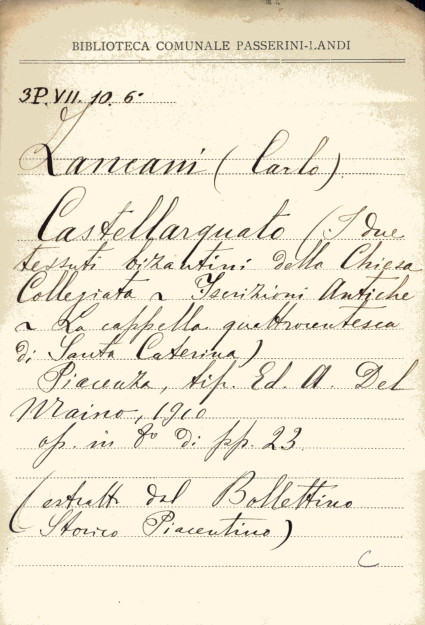 BIBLIOTECA COMUNALE PASSERINI-LANDI
3P. VII. 10. 6.
Lancani (Carlo)
Castellarquato (I due
tessuti bizantini della Chiesa
Collegiata ~ Iscrizioni Antiche
~ La cappella quattrocentesca
di Santa Caterina)
Piacenza, tip. Ed. A. Del
Maino, 1910
op. in 8º di pp. 23
(estratto dal Bollettino
Storico Piacentino)
C